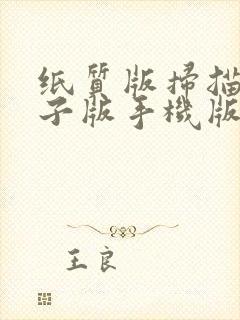 纸質版掃描
子版手機版
王良